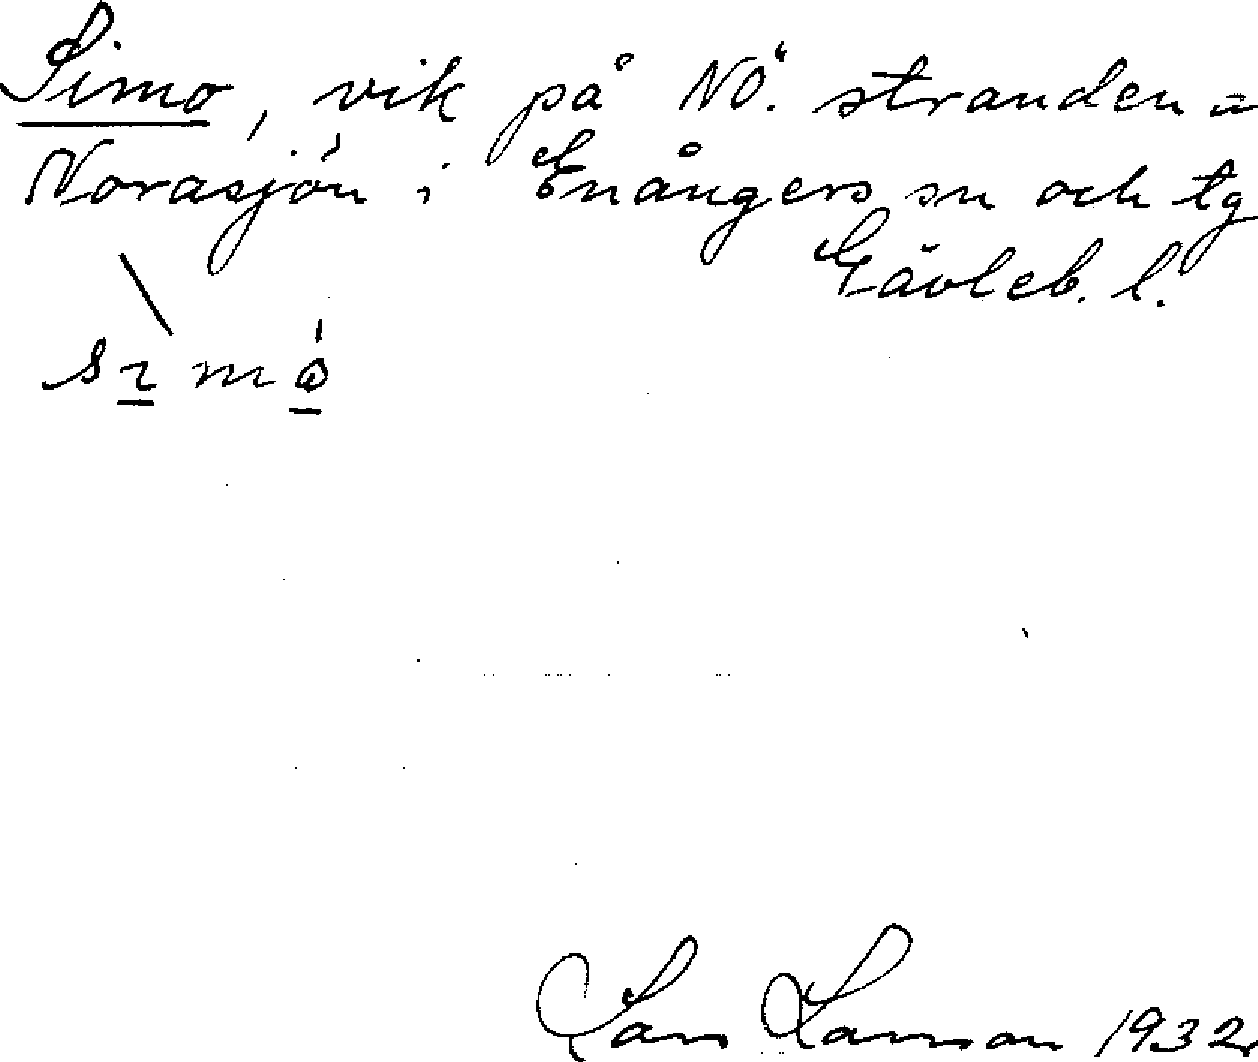 Simo, vik på NÖ. stranden =
Norasjön i Enångers sn och tg
Gävleb. l.
Lars Larsson 1932.